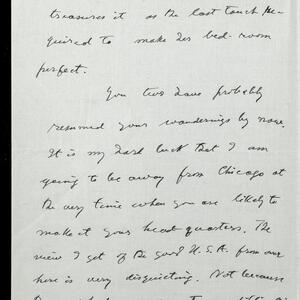 treasures it as the last touch re-
quired to make her bed-room
perfect.
You two have probably
resumed your wanderings by now.
It is my hard luck that I am
going to be away from Chicago at
the very time when you are likely to
make it your head quarters. The
view I get of the good U.S.A. from over
here is very disquieting. Not because